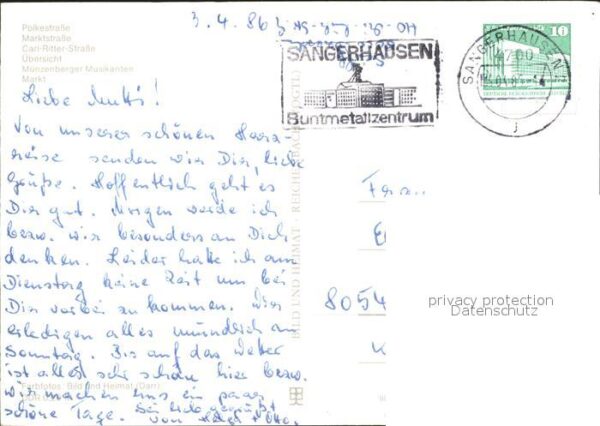 3. 4. 86
Polkestraße
Marktstraße
Carl-Ritter-Straße
Übersicht
Münzenberger Musikanten
Markt
SANGERHAUSEN
Buntmetallzentrum
SANGERHAUSEN 1
4700
j
10
DEUTSCHE DEMOKRATISCHE
Liebe Mutti!
Von unserer schönen Harz-
reise senden wir Dir, liebe
Grüße. Hoffentlich geht es
Dir gut. Morgen werde ich
bezw. wir besonders an Dich
denken. Leider habe ich am
Dienstag keine Zeit um bei
Dir vorbei zu kommen. Wir
erledigen alles mündlich am
Sonntag. Bis auf das Wetter
ist alles sehr schön hier bezw.
wir machen uns ein paar
schöne Tage. Sei lieb gegrüßt
von
Farbfotos: Bild und Heimat (Darr)
BILD UND HEIMAT REICHENBACH (VOGTL)
Frau
8054
privacy protection
Datenschutz